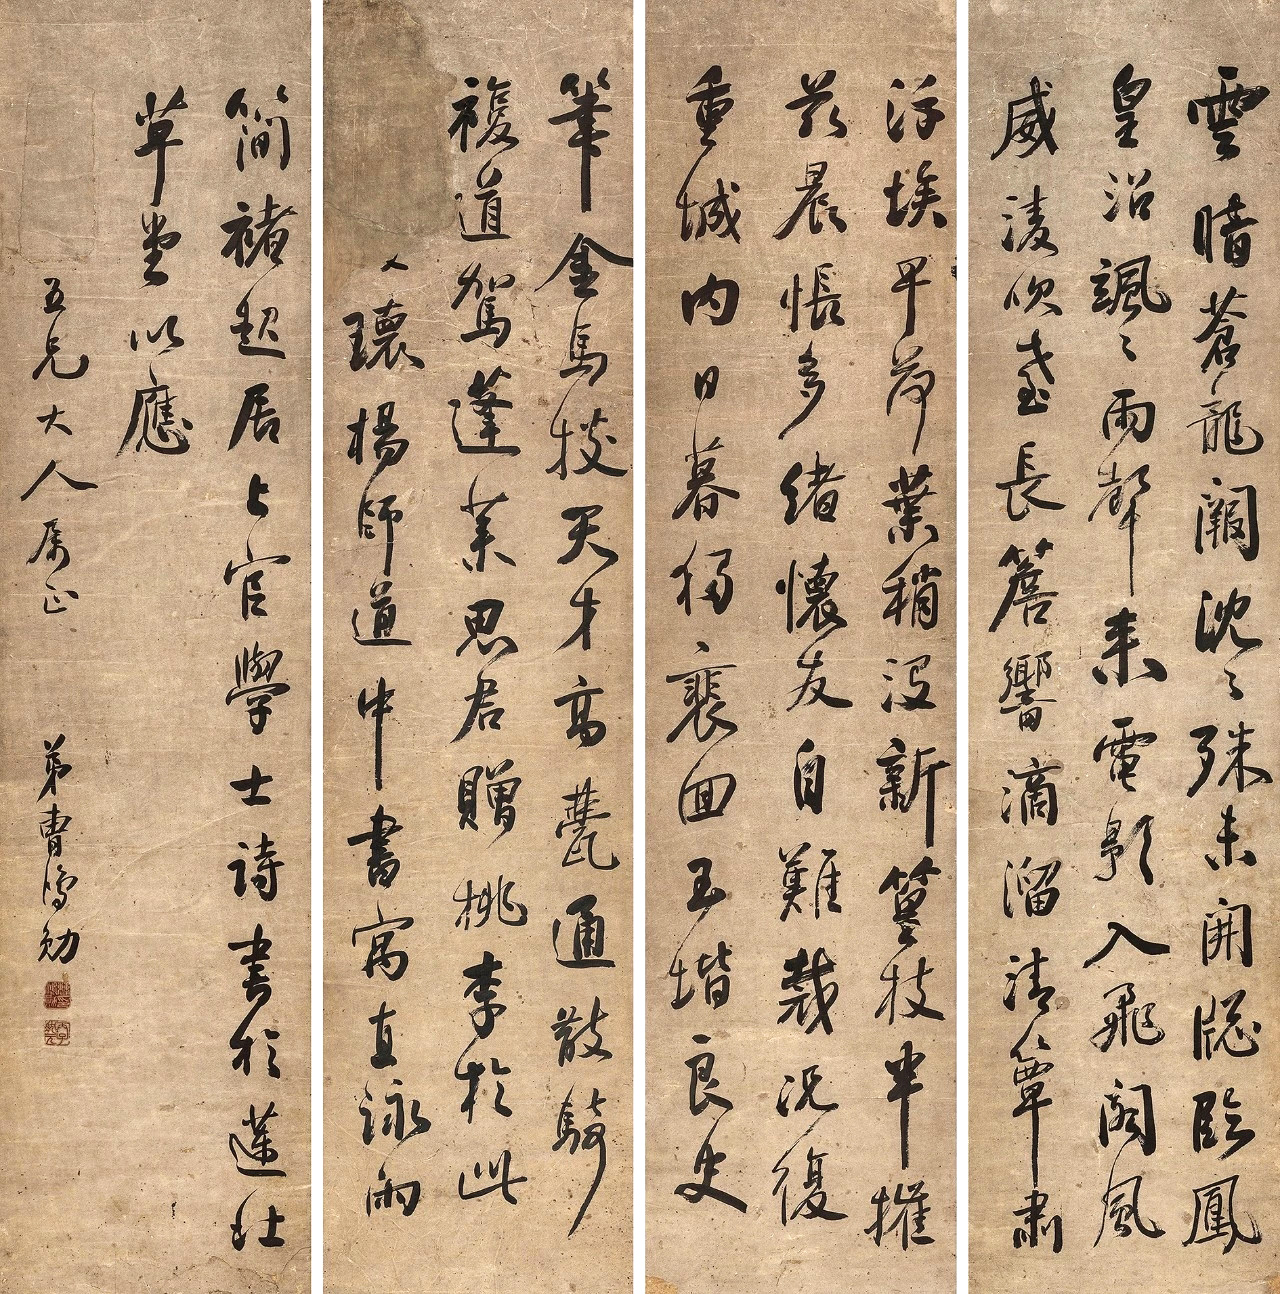 雲暗蒼龍闕沈〻殊未開窓臨鳳
皇沼颯〻雨聲来電影入飛閣風
威凌吹臺長簷響滴溜清簟肅
浮埃早荷葉稍沒新篁枝半摧
茲晨悵多緒懷友自難裁況復
重城内日暮獨裴回玉堦良史
筆金馬掞天才高甍通散騎
複道駕蓬莱思君贈桃李於此
瓌楊師道中書寓直詠雨
簡褚起居上官學士詩書於蓮社
草堂以應
五兄大人属正
弟曹鴻勛